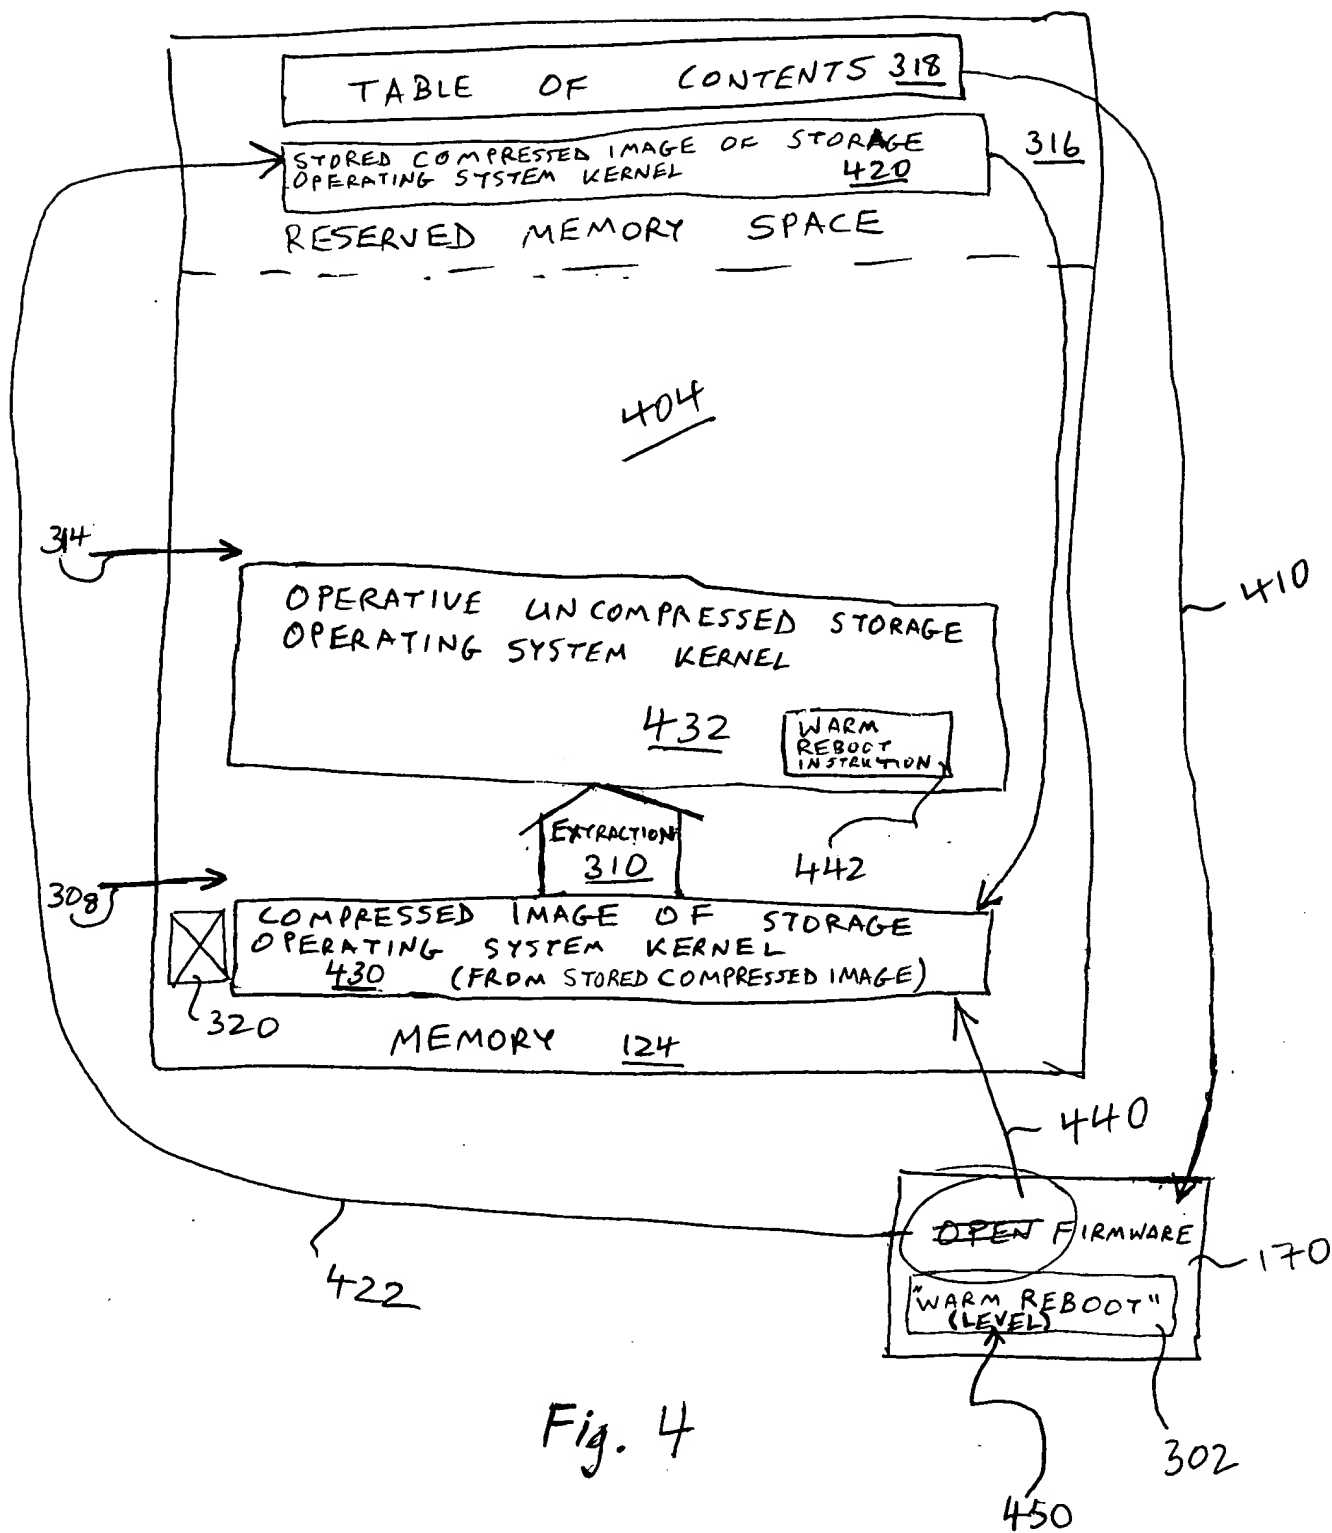 TABLE OF CONTENTS 318
STORED COMPRESSED IMAGE OF STORAGE
OPERATING SYSTEM KERNEL 420
316
RESERVED MEMORY SPACE
404
314
410
OPERATIVE UNCOMPRESSED STORAGE
OPERATING SYSTEM KERNEL
432
WARM
REBOOT
INSTRUCTION
EXTRACTION
310
442
308
COMPRESSED IMAGE OF STORAGE
OPERATING SYSTEM KERNEL
430 (FROM STORED COMPRESSED IMAGE)
320
MEMORY 124
440
OPEN FIRMWARE
170
"WARM REBOOT"
(LEVEL)
422
302
450
Fig. 4